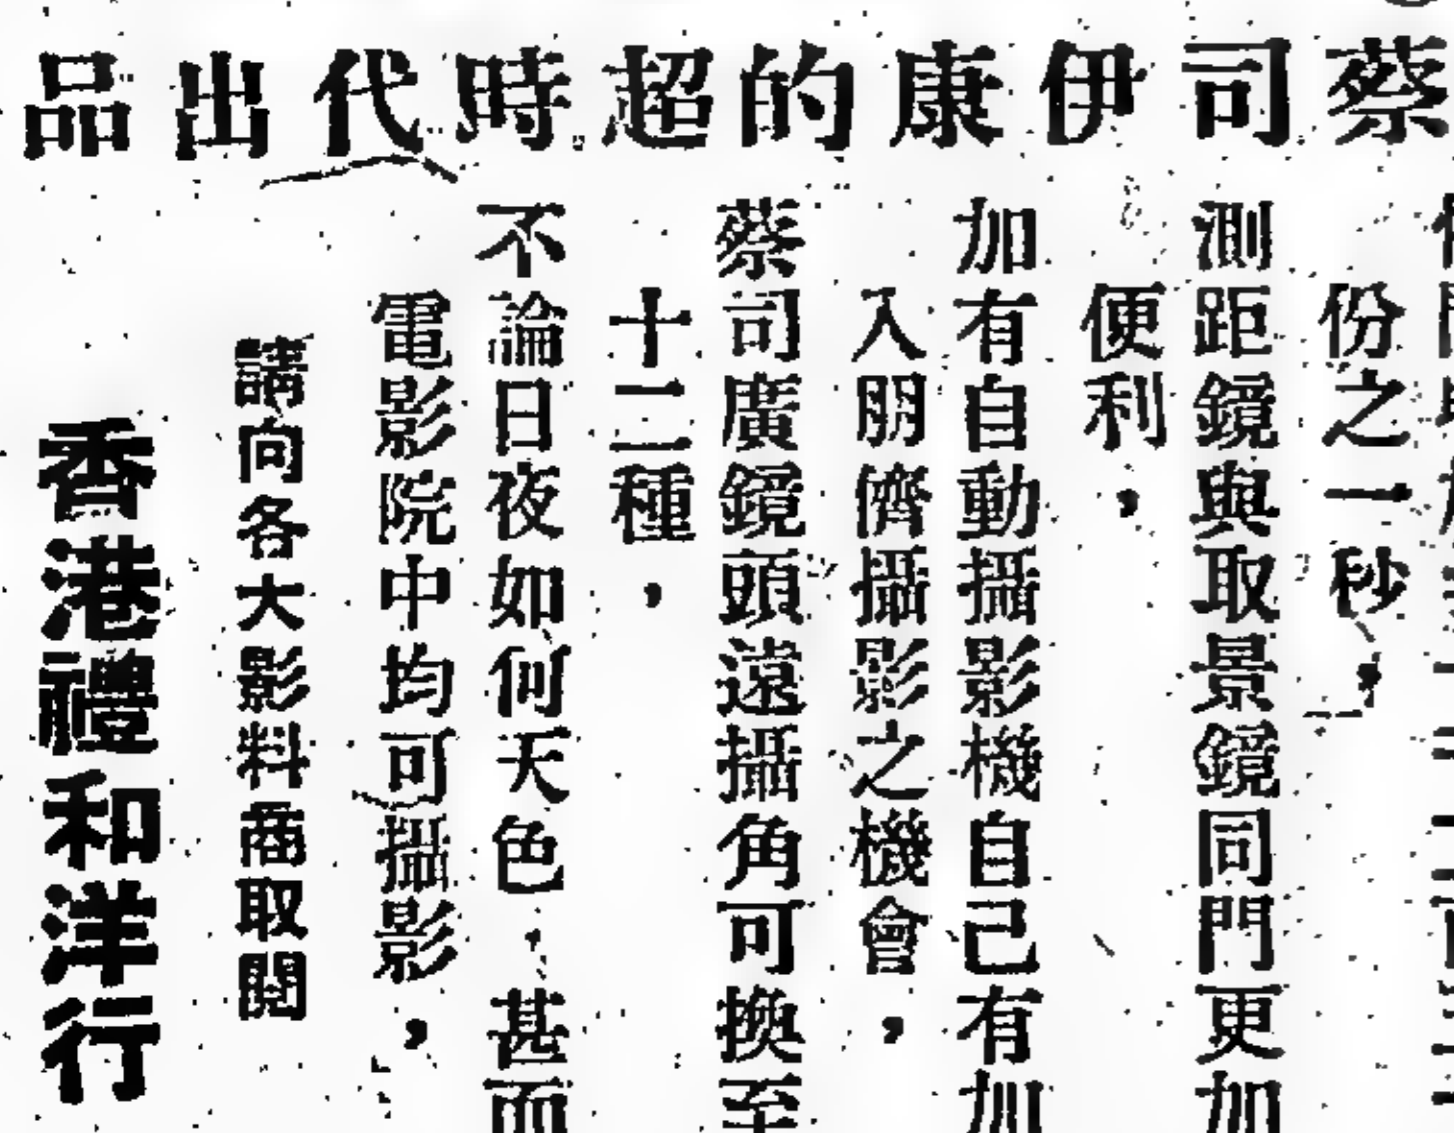 蔡司伊康的超時代出品
份之一秒，
測距鏡與取景鏡同門更加
便利，
加有自動攝影機自己有加
入朋儕攝影之機會，
蔡司廣鏡頭遠攝角可換至
十二種，
不論日夜如何天色，甚而
電影院中均可攝影，
請向各大影料商取閱
香港禮和洋行